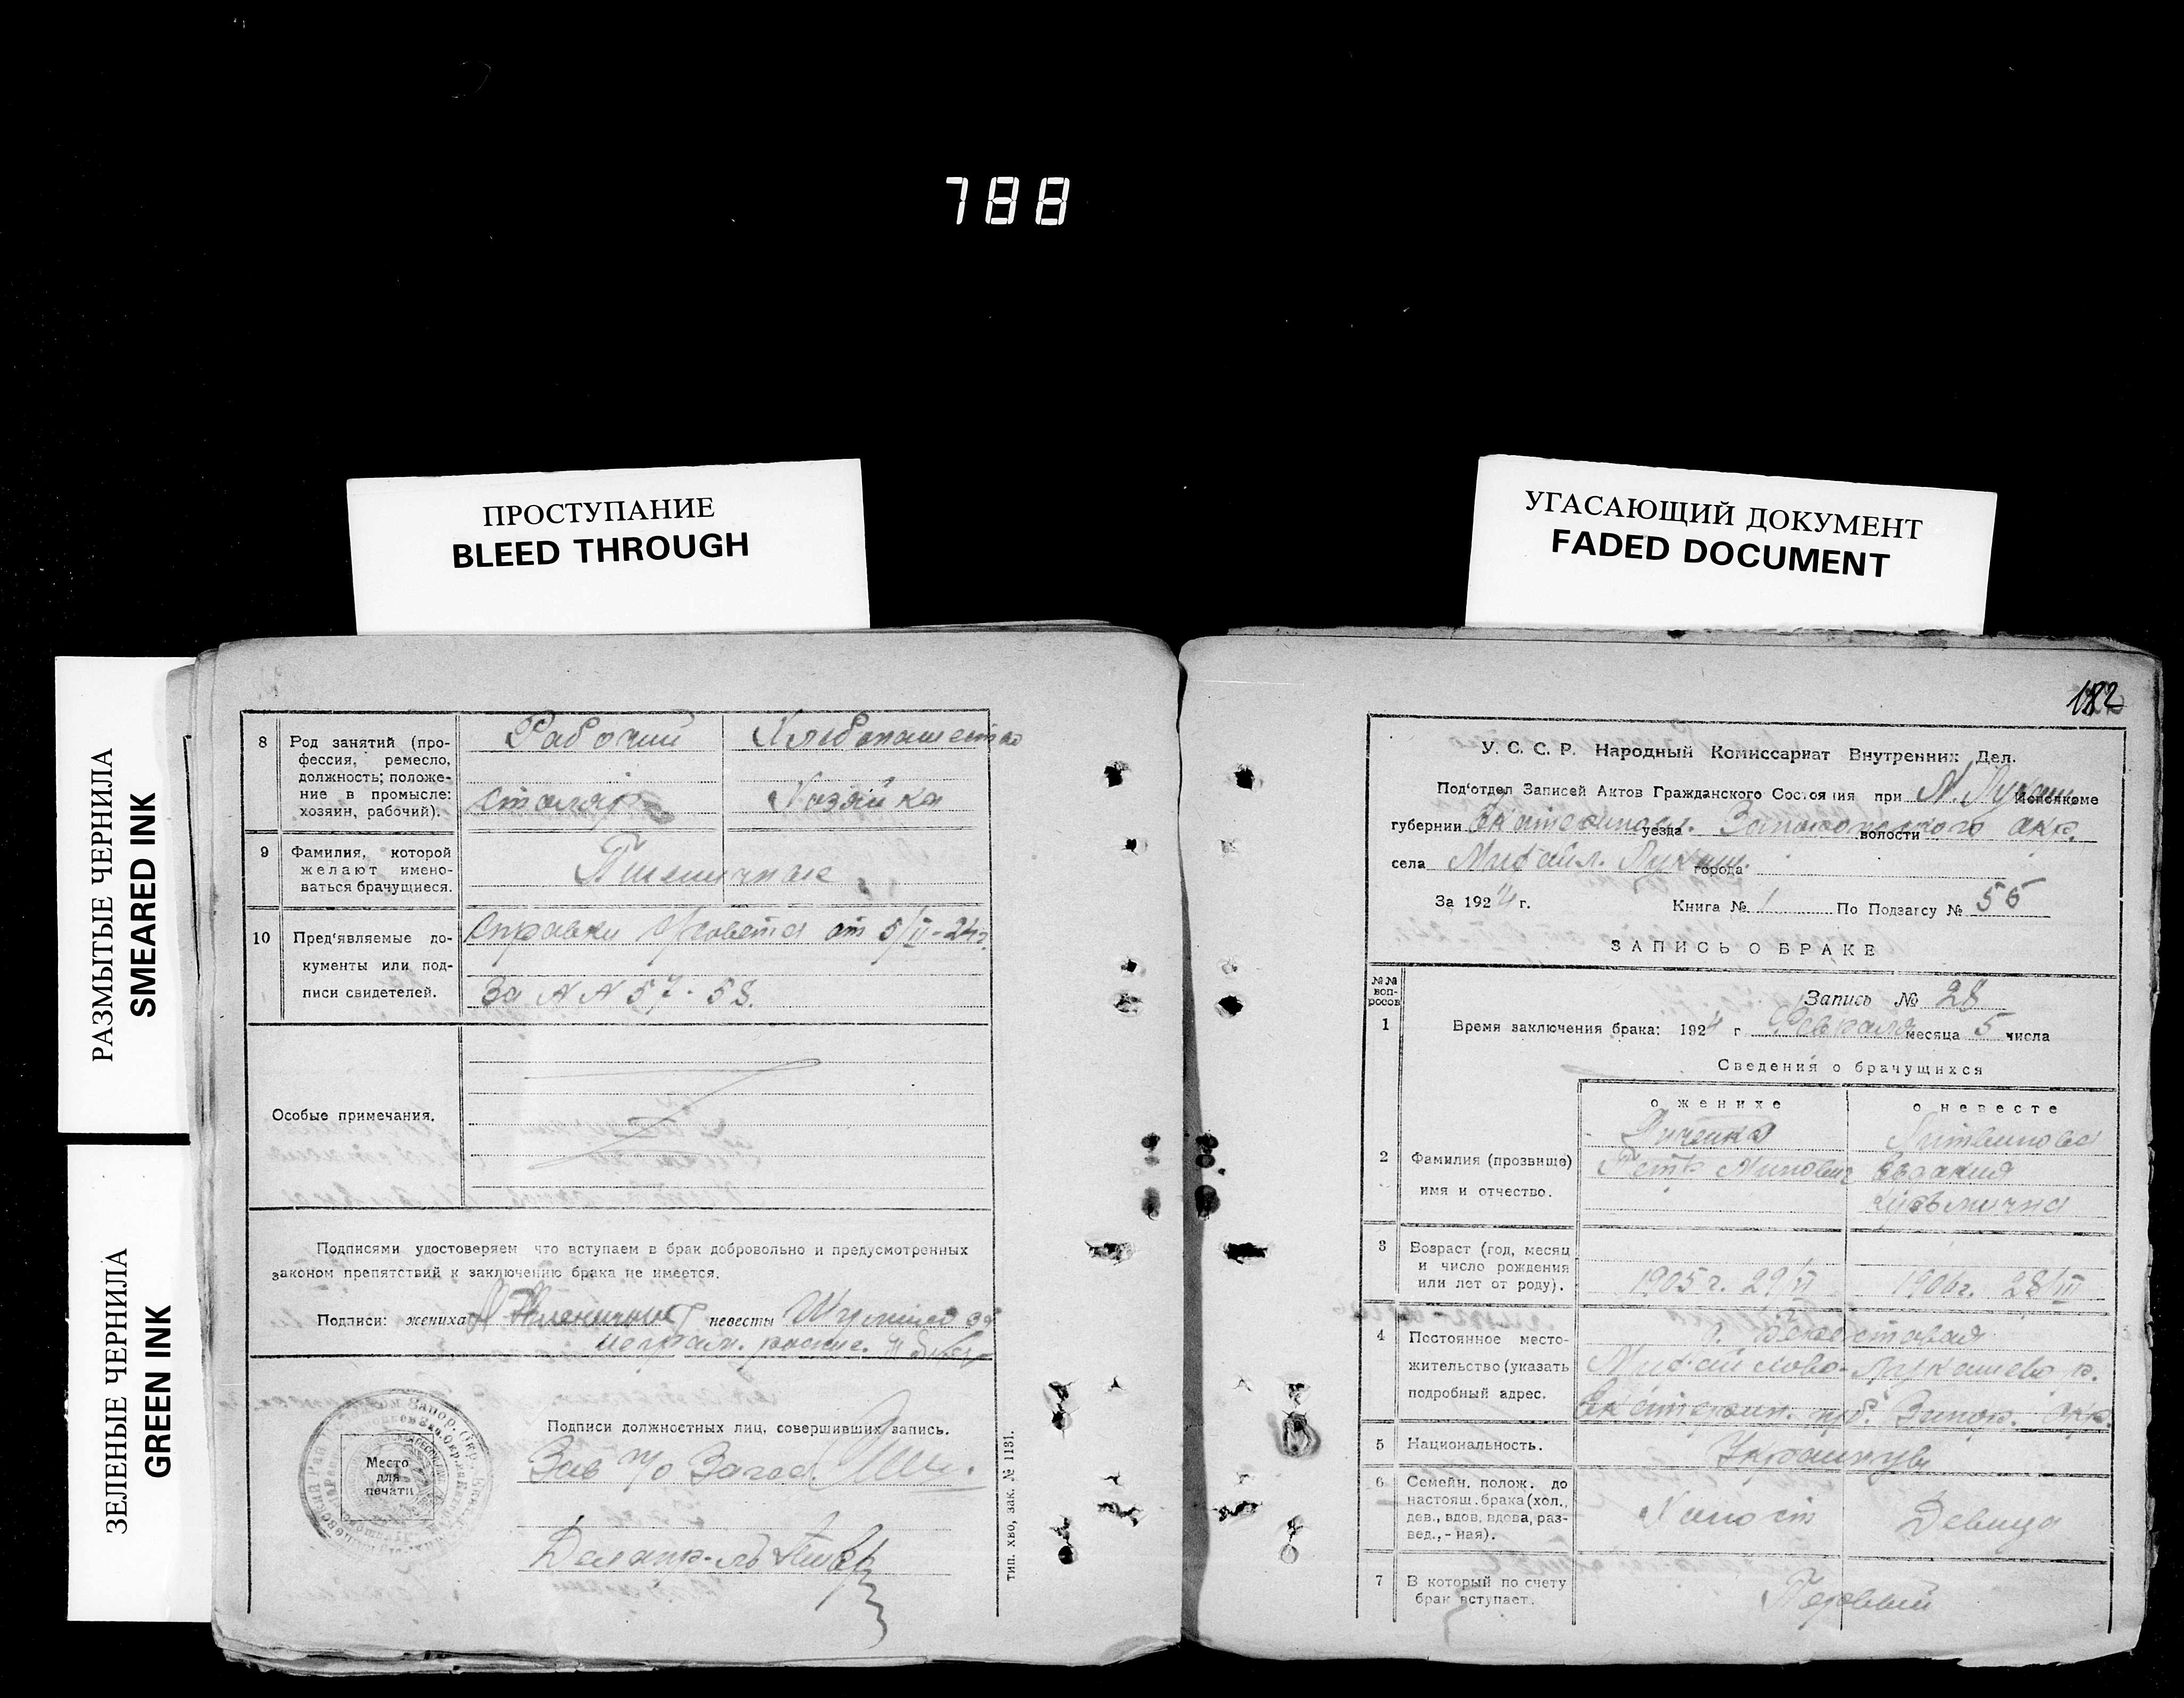 788
ПРОСТУПАНИЕ
BLEED THROUGH
УГАСАЮЩИЙ ДОКУМЕНТ
FADED DOCUMENT
РАЗМЫТЫЕ ЧЕРНИЛА
SMEARED INK
ЗЕЛЕНЫЕ ЧЕРНИЛА
GREEN INK
8 Род занятий (про-
фессия, ремесло,
должность; положе-
ние в промысле:
хозяин, рабочий).
Рабочий
столяр
Хлебопашество
Хозяйка
9 Фамилия, которой
желают имено-
ваться брачущиеся.
10 Пред'являемые до-
кументы или под-
писи свидетелей.
Справки от 5/II-24г.
За NN 57-58.
Особые примечания.
Подписями удостоверяем что вступаем в брак добровольно и предусмотренных
законом препятствий к заключению брака не имеется.
Подписи: жениха невесты
Подписи должностных лиц, совершивших запись.
Место
для
печати
тип. хво, зак. № 1131.
182
У. С. С. Р. Народный Комиссариат Внутренних Дел.
Под'отдел Записей Актов Гражданского Состояния при М. Лукаш. Исполкоме
губернии Екатериносл. уезда Запорожского волости окр.
села Михайл. Лукаш. города
За 1924 г. Книга № 1 По Подзагсу № 56
ЗАПИСЬ О БРАКЕ
№№
воп-
росов
Запись № 28
1 Время заключения брака: 1924 г Февраля месяца 5 числа
Сведения о брачущихся
о женихе
о невесте
2 Фамилия (прозвище)
имя и отчество.
Петр
Литвинова
Евдокия
Кузьмична
3 Возраст (год, месяц
и число рождения
или лет от роду).
1905 г. 29/VI
1906г. 28/III
4 Постоянное место-
жительство (указать
подробный адрес.
Михайлово-Лукашево р.
Екатерин. губ. Запор. Окр.
5 Национальность.
Украинцы
6 Семейн. полож. до
настоящ. брака (хол.,
дев., вдов, вдова, раз-
вед., - ная).
Холост
Девица
7 В который по счету
брак вступает.
Первый